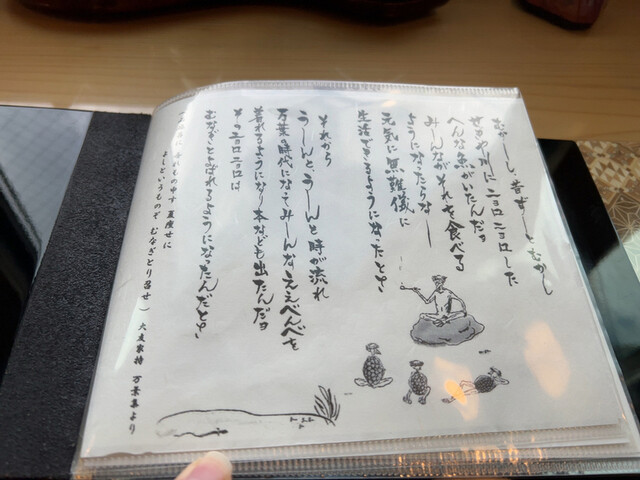 むかーしし、昔ずーーとむかし
ぜるや川にニョロニョロした
へんな魚がいたんだョ
みーんながそれを食べてる
ようになったらなー
元気に無難儀に
生活できるようになったとさ
それから
うーんと、うーんと時が流れ
万葉時代になってみーんなええべべを
着れるようになり本なども出たんだョ
そのニョロニョロは
むなぎとよばれるようになったんだとさ
吾もの申す 夏痩せに
よしというものぞ むなぎとり召せ） 大友家持 万葉集より